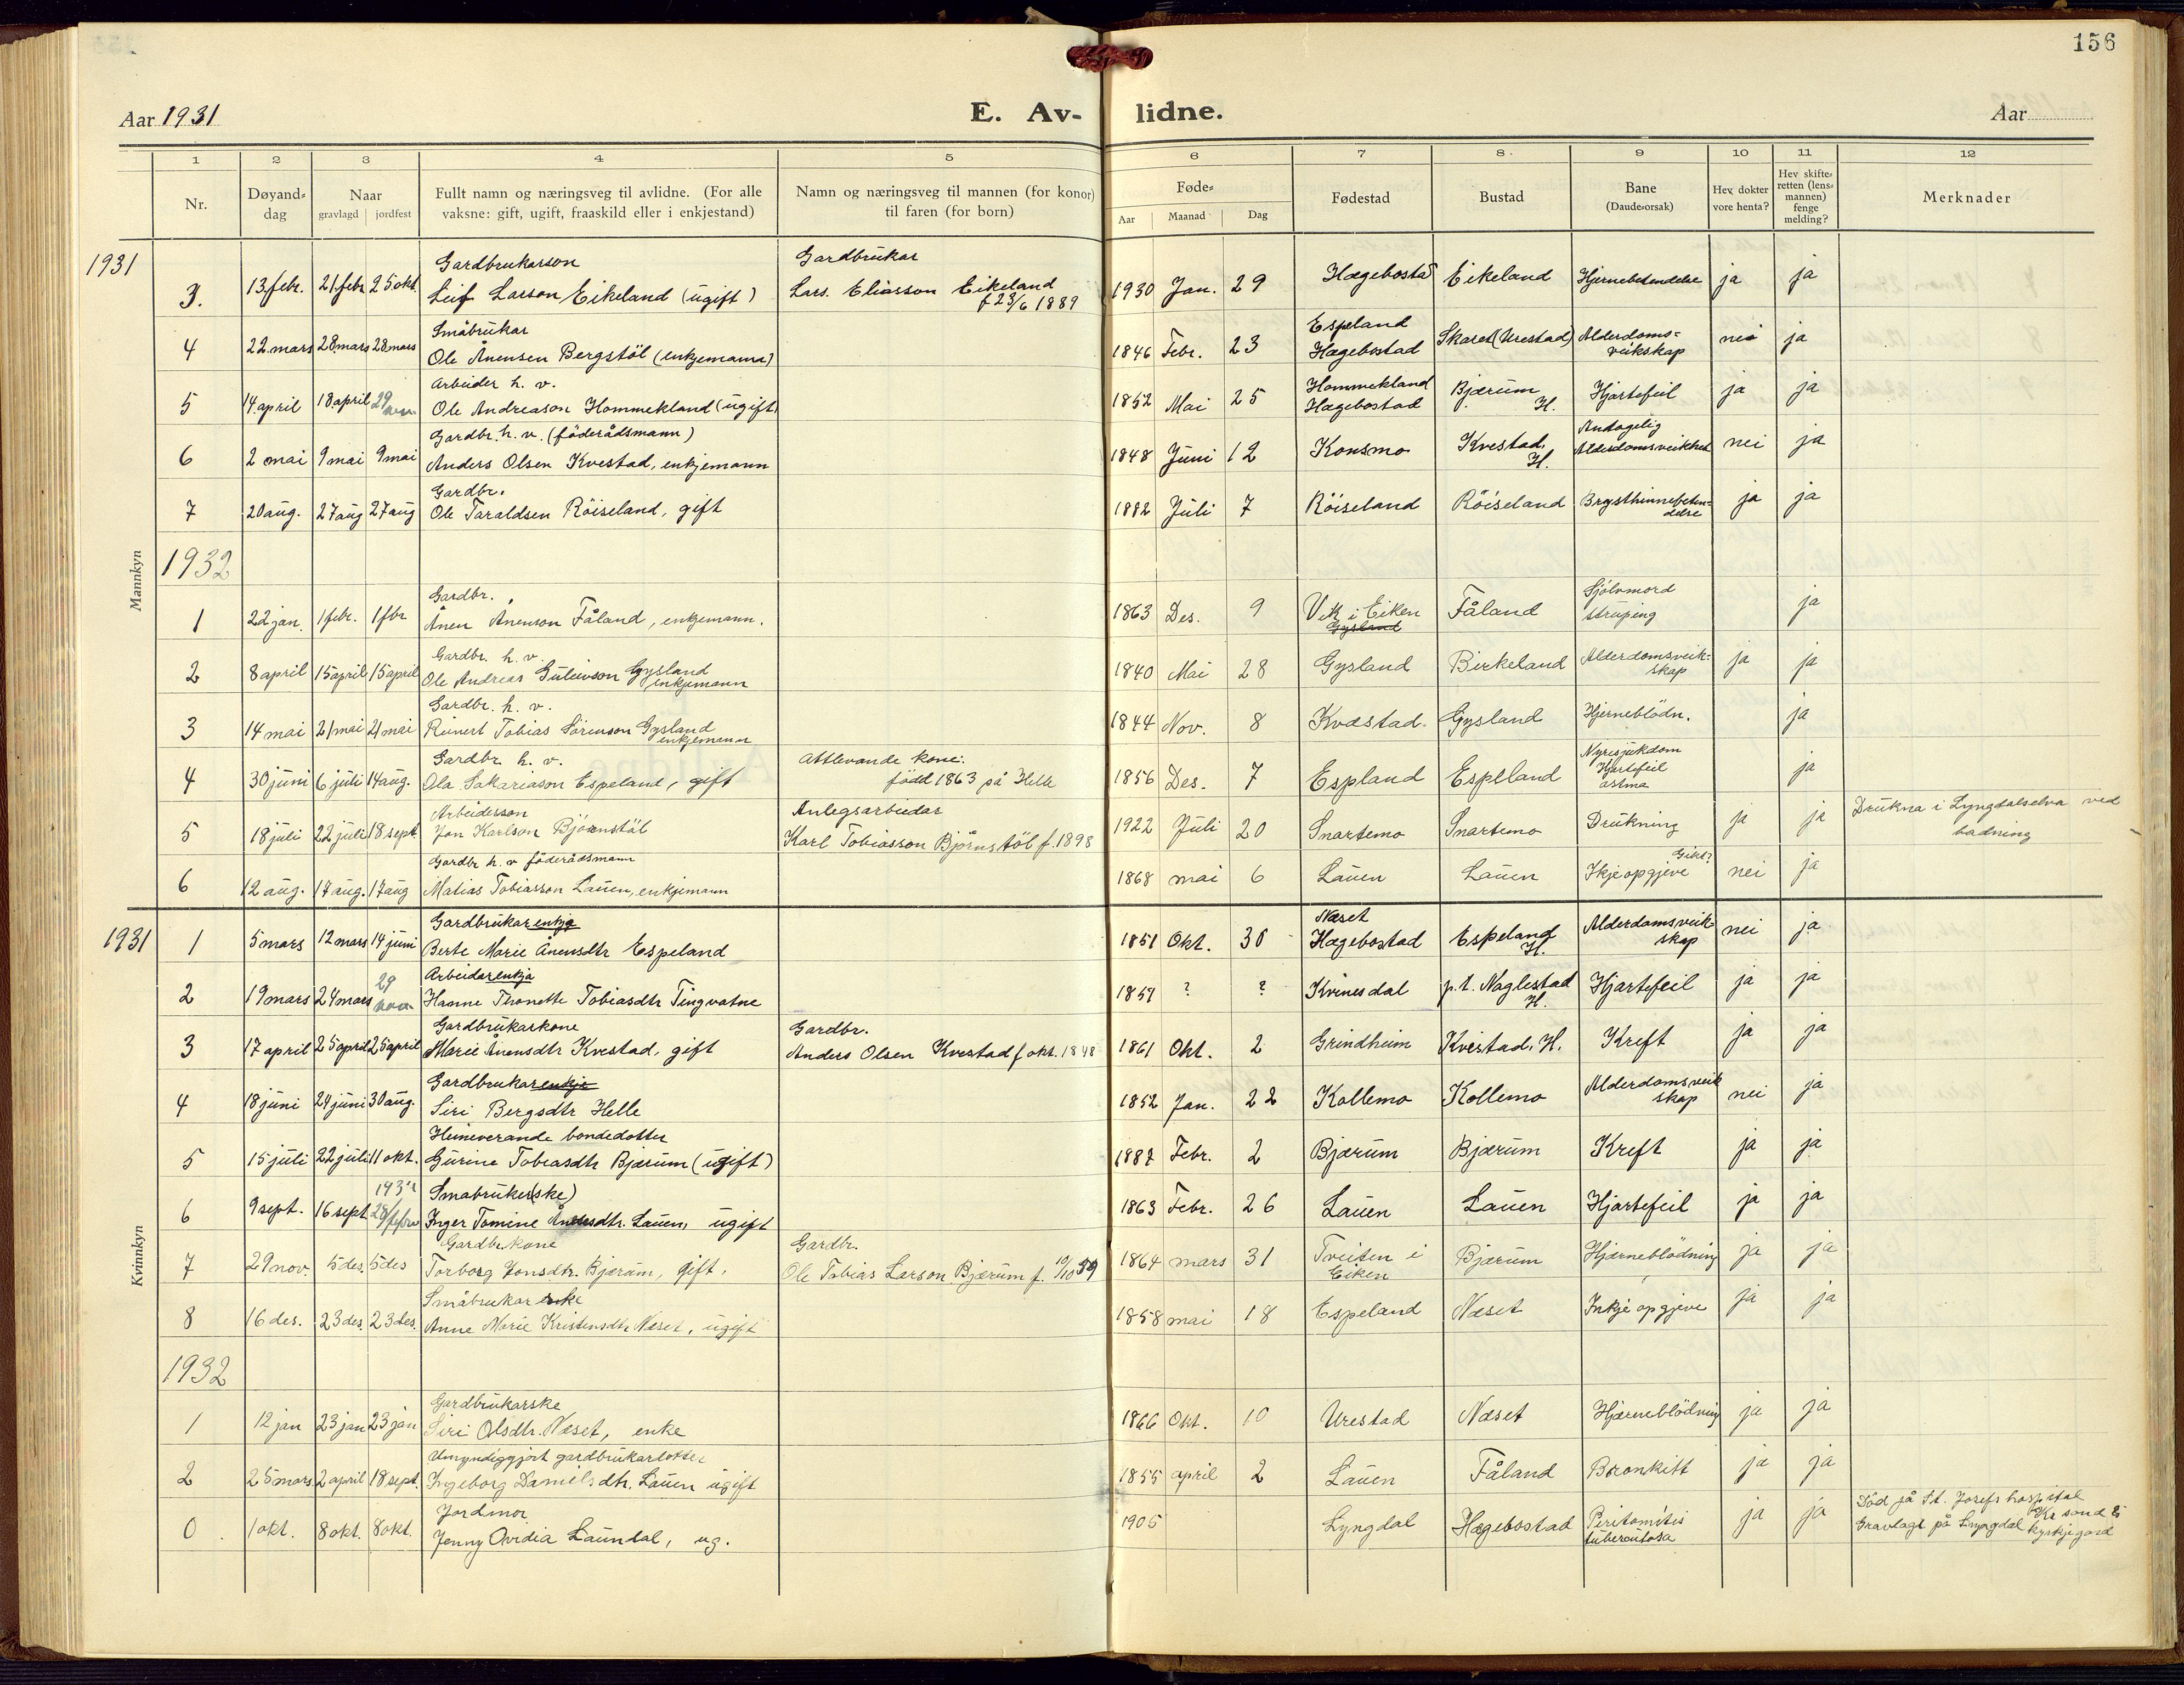 156
Aar 1931
E. Av-lidne.
Aar
1 2 3 4 5 6 7 8 9 10 11 12
Nr.
Døyand-dag
Naar gravlagd jordfest
Fullt namn og næringsveg til avlidne. (For alle vaksne: gift, ugift, fraaskild eller i enkjestand)
Namn og næringsveg til mannen (for konor) til faren (for born)
Føde- Aar Maanad Dag
Fødestad
Bustad
Bane (Daude-orsak)
Hev dokter vore henta?
Hev skifte-retten (lens-mannen) fenge melding?
Merknader
Mannkyn
1931
3. 13 febr. 21 febr 25 okt. Gardbrukarson Leif Larson Eikeland (ugift) Gardbrukar Lars. Eliasson Eikeland f 23/6 1889 1930 Jan. 29 Hægebostad Eikeland Hjernebetendelse ja ja
4 22 mars 28 mars 28 mars Småbrukar Ole Ånensen Bergstöl (enkjemann) 1846 Febr. 23 Espeland Hægebostad Skaret (Urestad) Alderdoms-veikskap nei ja
5 14 april 18 april 29 nov Arbeider h. v. Ole Andreason Hommekland (ugift) 1852 Mai 25 Hommekland Hægebostad Bjærum H. Hjartefeil ja ja
6 2 mai 9 mai 9 mai Gardbr. h. v. (föderådsmann) Anders Olsen Kvestad, enkjemann 1848 Juni 12 Konsmo Kvestad, H. Alderdomsveikhet nei ja
7 20 aug. 27 aug 27 aug Gardbr. Ole Taraldsen Röiseland, gift 1882 Juli 7 Röiseland Röiseland Brysthinnebeten-delse ja ja
1932
1 22 jan. 1 febr. 1 fbr Gardbr. Ånen Ånenson Fåland, enkjemann. 1863 Des. 9 Vik i Eiken Gysland Fåland Sjölvmord struping ja
2 8 april 15 april 15 april Gardbr. h. v. Ole Andreas Guleivson Gysland enkjemann 1840 Mai 28 Gysland Birkeland Alderdomsveik-skap ja ja
3 14 mai 21 mai 21 mai Gardbr. h. v. Reinert Tobias Sörenson Gysland enkjemann 1844 Nov. 8 Kvæstad. Gysland Hjerneblödn. ja
4 30 juni 6 juli 14 aug. Gardbr. h. v. Ola Sakariason Espeland, gift Attlevande kone: född 1863 på Helle 1856 Des. 7 Espland Espeland Nyresjukdom Hjartefeil astma ja
5 18 juli 22 juli 18 sept. Arbeiderson Jon Karlson Björnstöl Anlegsarbeidar Karl Tobiasson Bjørnstöl f. 1898 1922 Juli 20 Snartemo Snartemo Drukning ja ja Drukna i Lyngdalselva ved badning
6 12 aug. 17 aug. 17 aug Gardbr h. v föderådsmann Matias Tobiasson Lauen, enkjemann 1868 mai 6 Lauen Lauen Ikje opgjeve Gikt? nei ja
Kvinnkyn
1931
1 5 mars 12 mars 14 juni Gardbrukarenkje Berte Marie Ånensdtr Espeland 1851 Okt. 30 Næset Hægebostad Espeland H. Alderdomsveik-skap nei ja
2 19 mars 24 mars 29 nov Arbeidarenkja Hanne Thonette Tobiasdtr Tingvatne 1857 ? ? Kvinesdal p.t. Naglestad H. Hjartefeil ja ja
3 17 april 25 april 25 april Gardbrukarkone Marie Ånensdtr Kvestad, gift Gardbr. Anders Olsen Kvestad f okt. 1848 1861 Okt. 2 Grindheim Kvestad, H. Kreft ja ja
4 18 juni 24 juni 30 aug. Gardbrukarenkje Siri Bergsdtr Helle 1852 Jan. 22 Kollemo Kollemo Alderdomsveik skap nei ja
5 15 juli 22 juli 11 okt. Heimeverande bondedotter Gurine Tobiasdtr Bjærum (ugift) 1887 Febr. 2 Bjærum Bjærum Kreft ja ja
6 9 sept. 16 sept 1932 28/febr Småbruker(ske) Inger Tomine Ånensdtr. Lauen, ugift 1863 Febr. 26 Lauen Lauen Hjartefeil ja ja
7 29 nov. 5 des. 5 des Gardbr.kone Torborg Jonsdtr. Bjærum, gift. Gardbr. Ole Tobias Larson Bjærum f. 10/10 59 1864 mars 31 Tveiten i Eiken Bjærum Hjærneblödning ja ja
8 16 des. 23 des. 23 des. Småbrukarske Anne Marie Kristensdtr Næset, ugift 1858 mai 18 Espeland Næset Inkje opgjeve ja ja
1932
1 12 jan 23 jan 23 jan Gardbrukarske Siri Olsdtr. Næset, enke 1866 Okt. 10 Urestad Næset Hjærneblödning ja ja
2 25 mars 2 april 18 sept. Umyndiggjort gardbrukardotter Ingeborg Danielsdtr. Lauen ugift 1855 april 2 Lauen Fåland Bronkitt ja ja
0 1 okt. 8 okt. 8 okt. Jordmor Jenny Ovidia Laundal, ug. 1905 Lyngdal Hægebostad Peritonitis tuberculosa ja ja Död på St. Josefs hospital Kr sand S Gravlagt på Lyngdal kyrkjegard